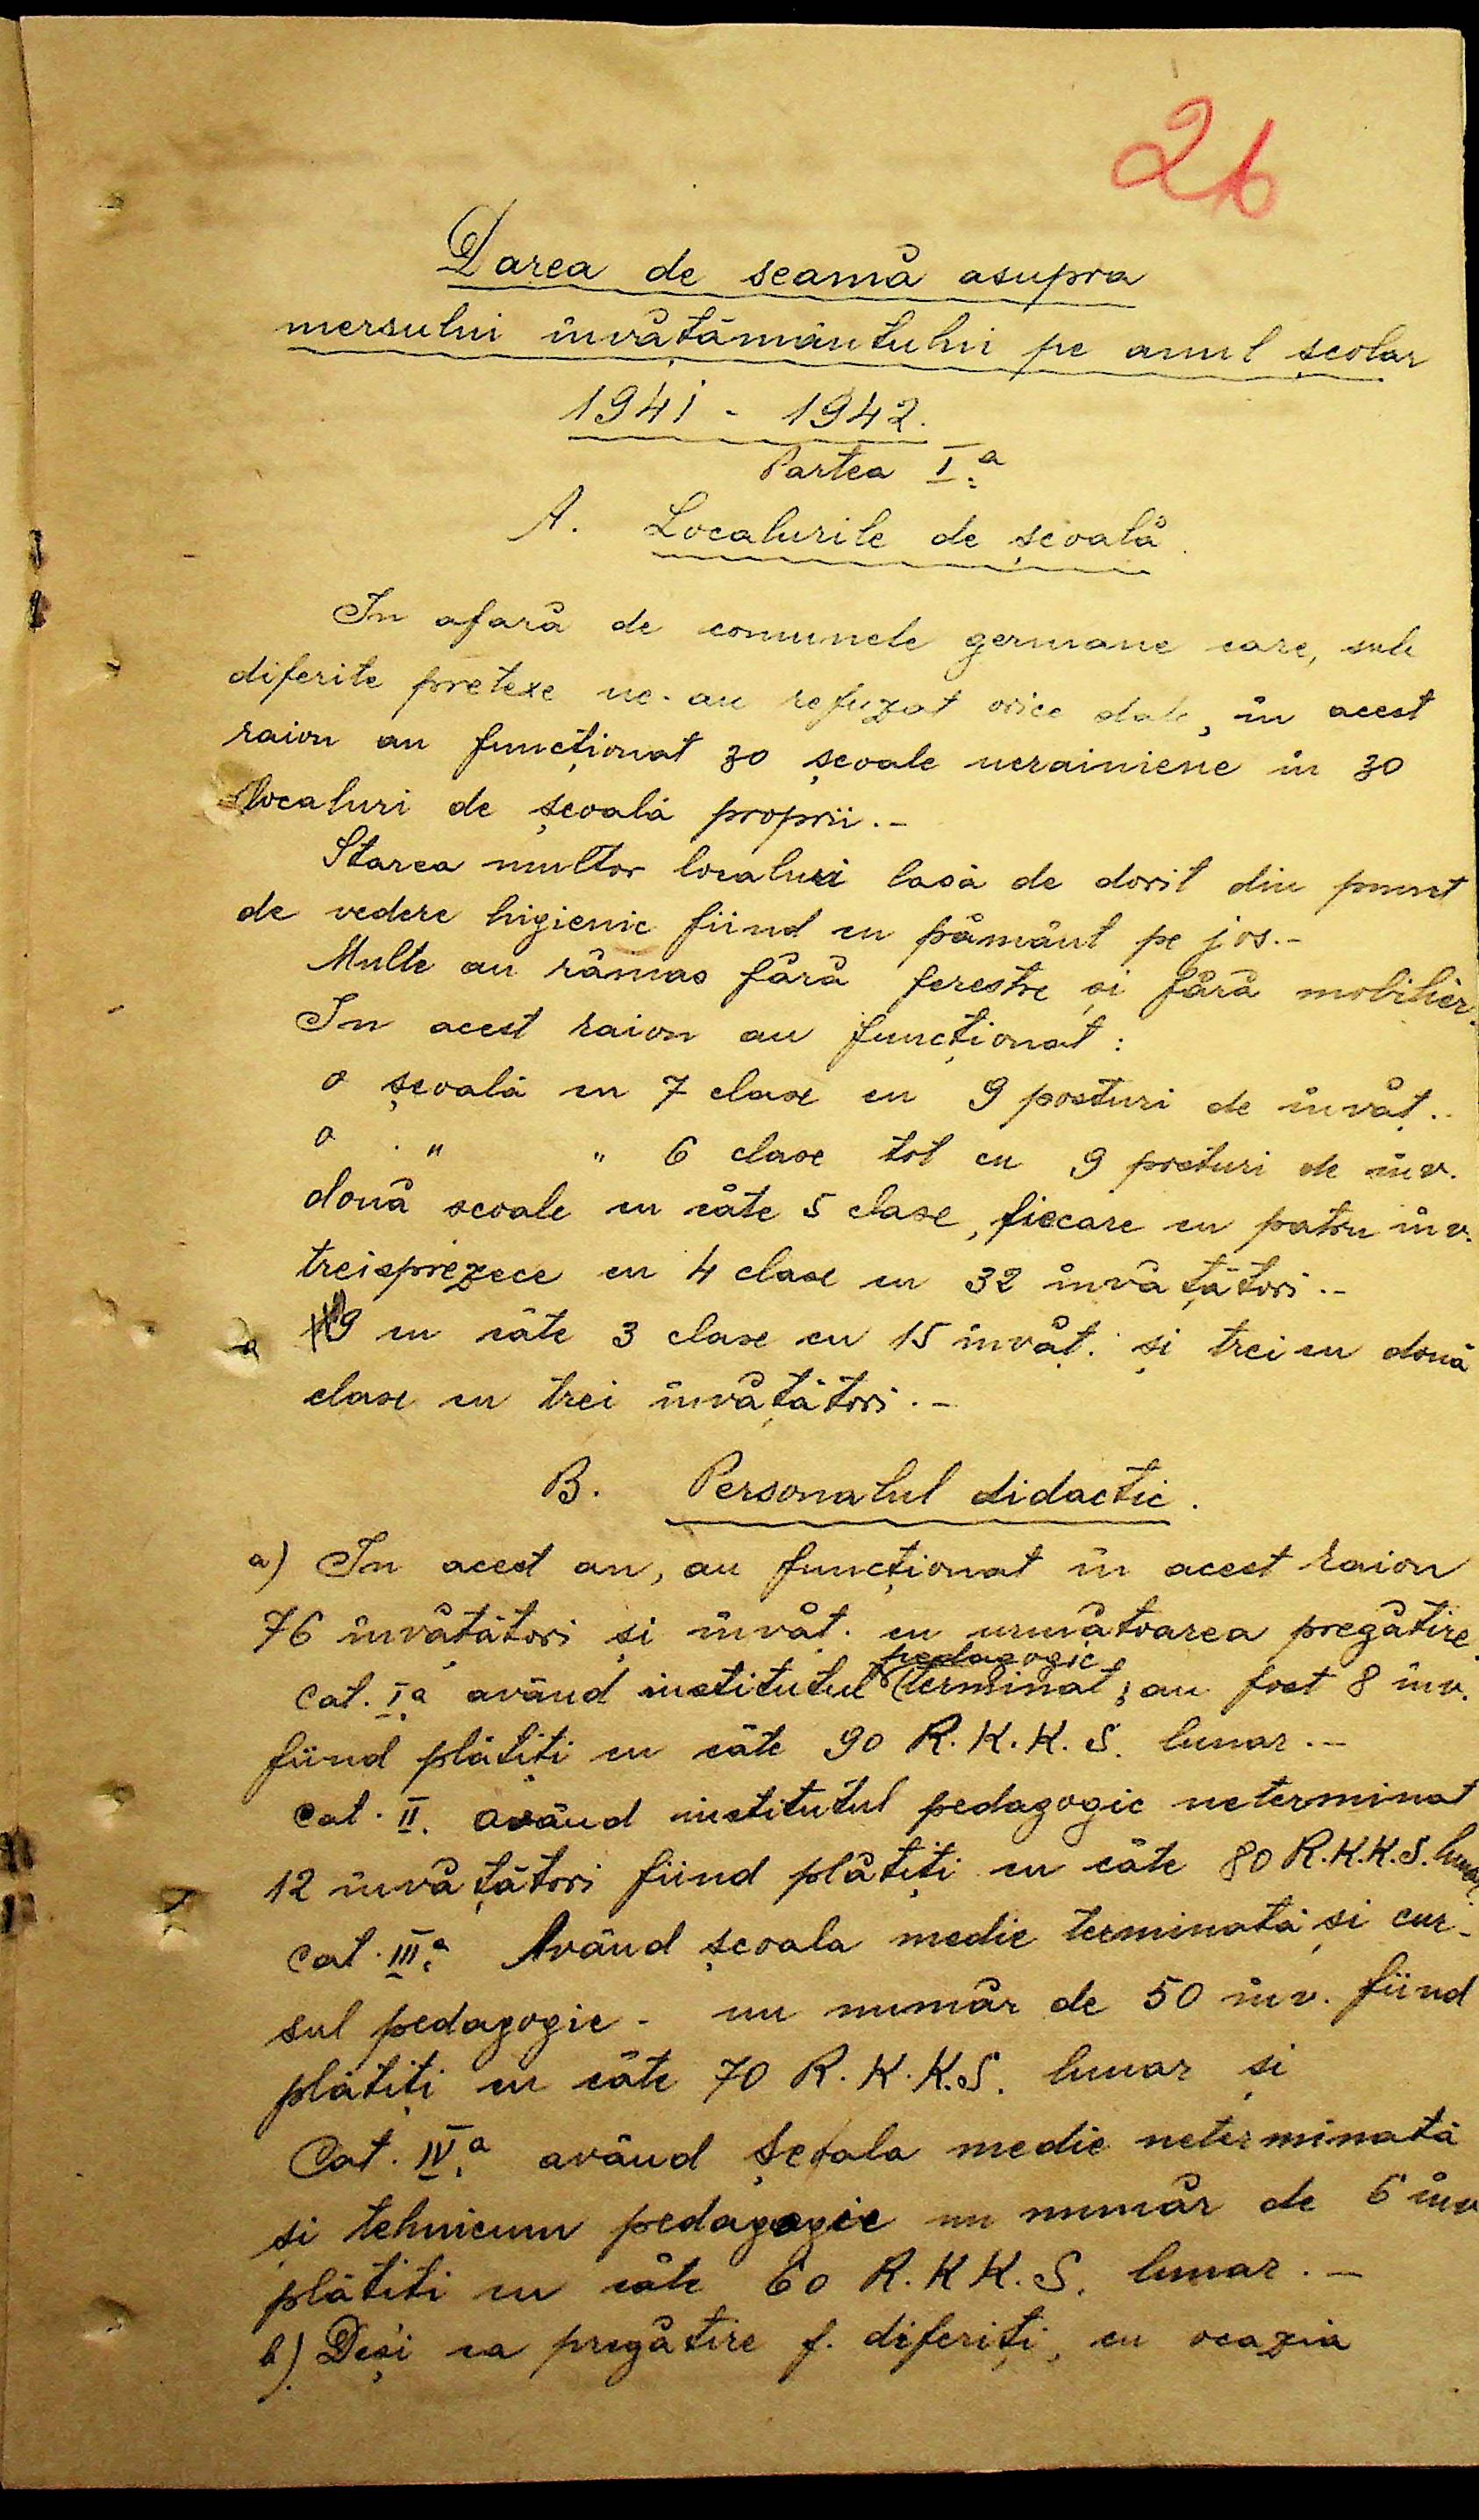 26
Darea de seamă asupra
mersului învățământului pe anul școlar
1941 - 1942.
Partea I.a
A. Localurile de școală.
In afară de comunele germane care, sub
diferite pretexe ne-au refuzat orice date, în acest
raion au funcționat 30 școale ucrainiene în 30
localuri de școală proprii.-
Starea multor localuri lasă de dorit din punct
de vedere higienic fiind cu pământ pe jos.-
Multe au rămas fără ferestre și fără mobilier.
In acest raion au funcționat:
o școală cu 7 clase cu 9 posturi de învăț..
o " " 6 clase tot cu 9 posturi de inv.
două scoale cu câte 5 clase, fiecare cu patru înv.
treisprezece cu 4 clase cu 32 învățători.-
9 cu câte 3 clase cu 15 învăț. și trei cu două
clase cu trei învățători.-
B. Personalul didactic.
a) In acest an, au funcționat în acest raion
76 învățători și învăț. cu următoarea pregătire.
pedagogic
Cat. I.a având institutul terminat; au fost 8 înv.
fiind plătiți cu câte 90 R.K.K.S. lunar.-
Cat. II. având institutul pedagogic neterminat
12 învățători fiind plătiți cu câte 80 R.K.K.S. lunar.
Cat. III.a Având școala medie terminată și cur-
sul pedagogic - un număr de 50 înv. fiind
plătiți cu câte 70 R.K.K.S. lunar și
Cat. IV.a având școala medie neterminată
și tehnicum pedagogic un număr de 6 înv
plătiti cu câte 60 R.K.K.S. lunar.-
b) Deși ca pregătire f. diferiți, cu ocazia